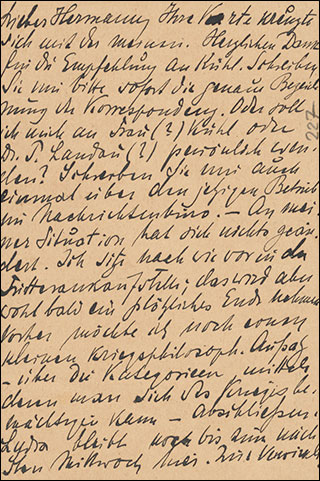 Lieber Hermann, Ihre Karte kreuzte
sich mit der meinen. Herzlichen Dank
für die Empfehlung an Kühl. Schreiben
Sie mir bitte sofort die genaue Bezeich
nung der Korrespondenz. Oder soll
ich mich an Frau (?) Kühl oder
Dr. P. Landau (?) persönlich wen-
den? Schreiben Sie mir auch
einmal über den jetzigen Betrieb
im Nachrichtenbüro. – An mei-
ner Situation hat sich nichts geän-
dert. Ich sitze nach wie vor in der
das wird aber
wohl bald ein plötzliches Ende nehmen
Vorher möchte ich noch einen
kleinen kriegsphilosoph. Aufsatz
– über die Kategorieen mittels
denen man sich des Krieges be-
mächtigen kann – abschließen.
Lydia bleibt noch bis zum näch
sten Mittwoch hier.
287